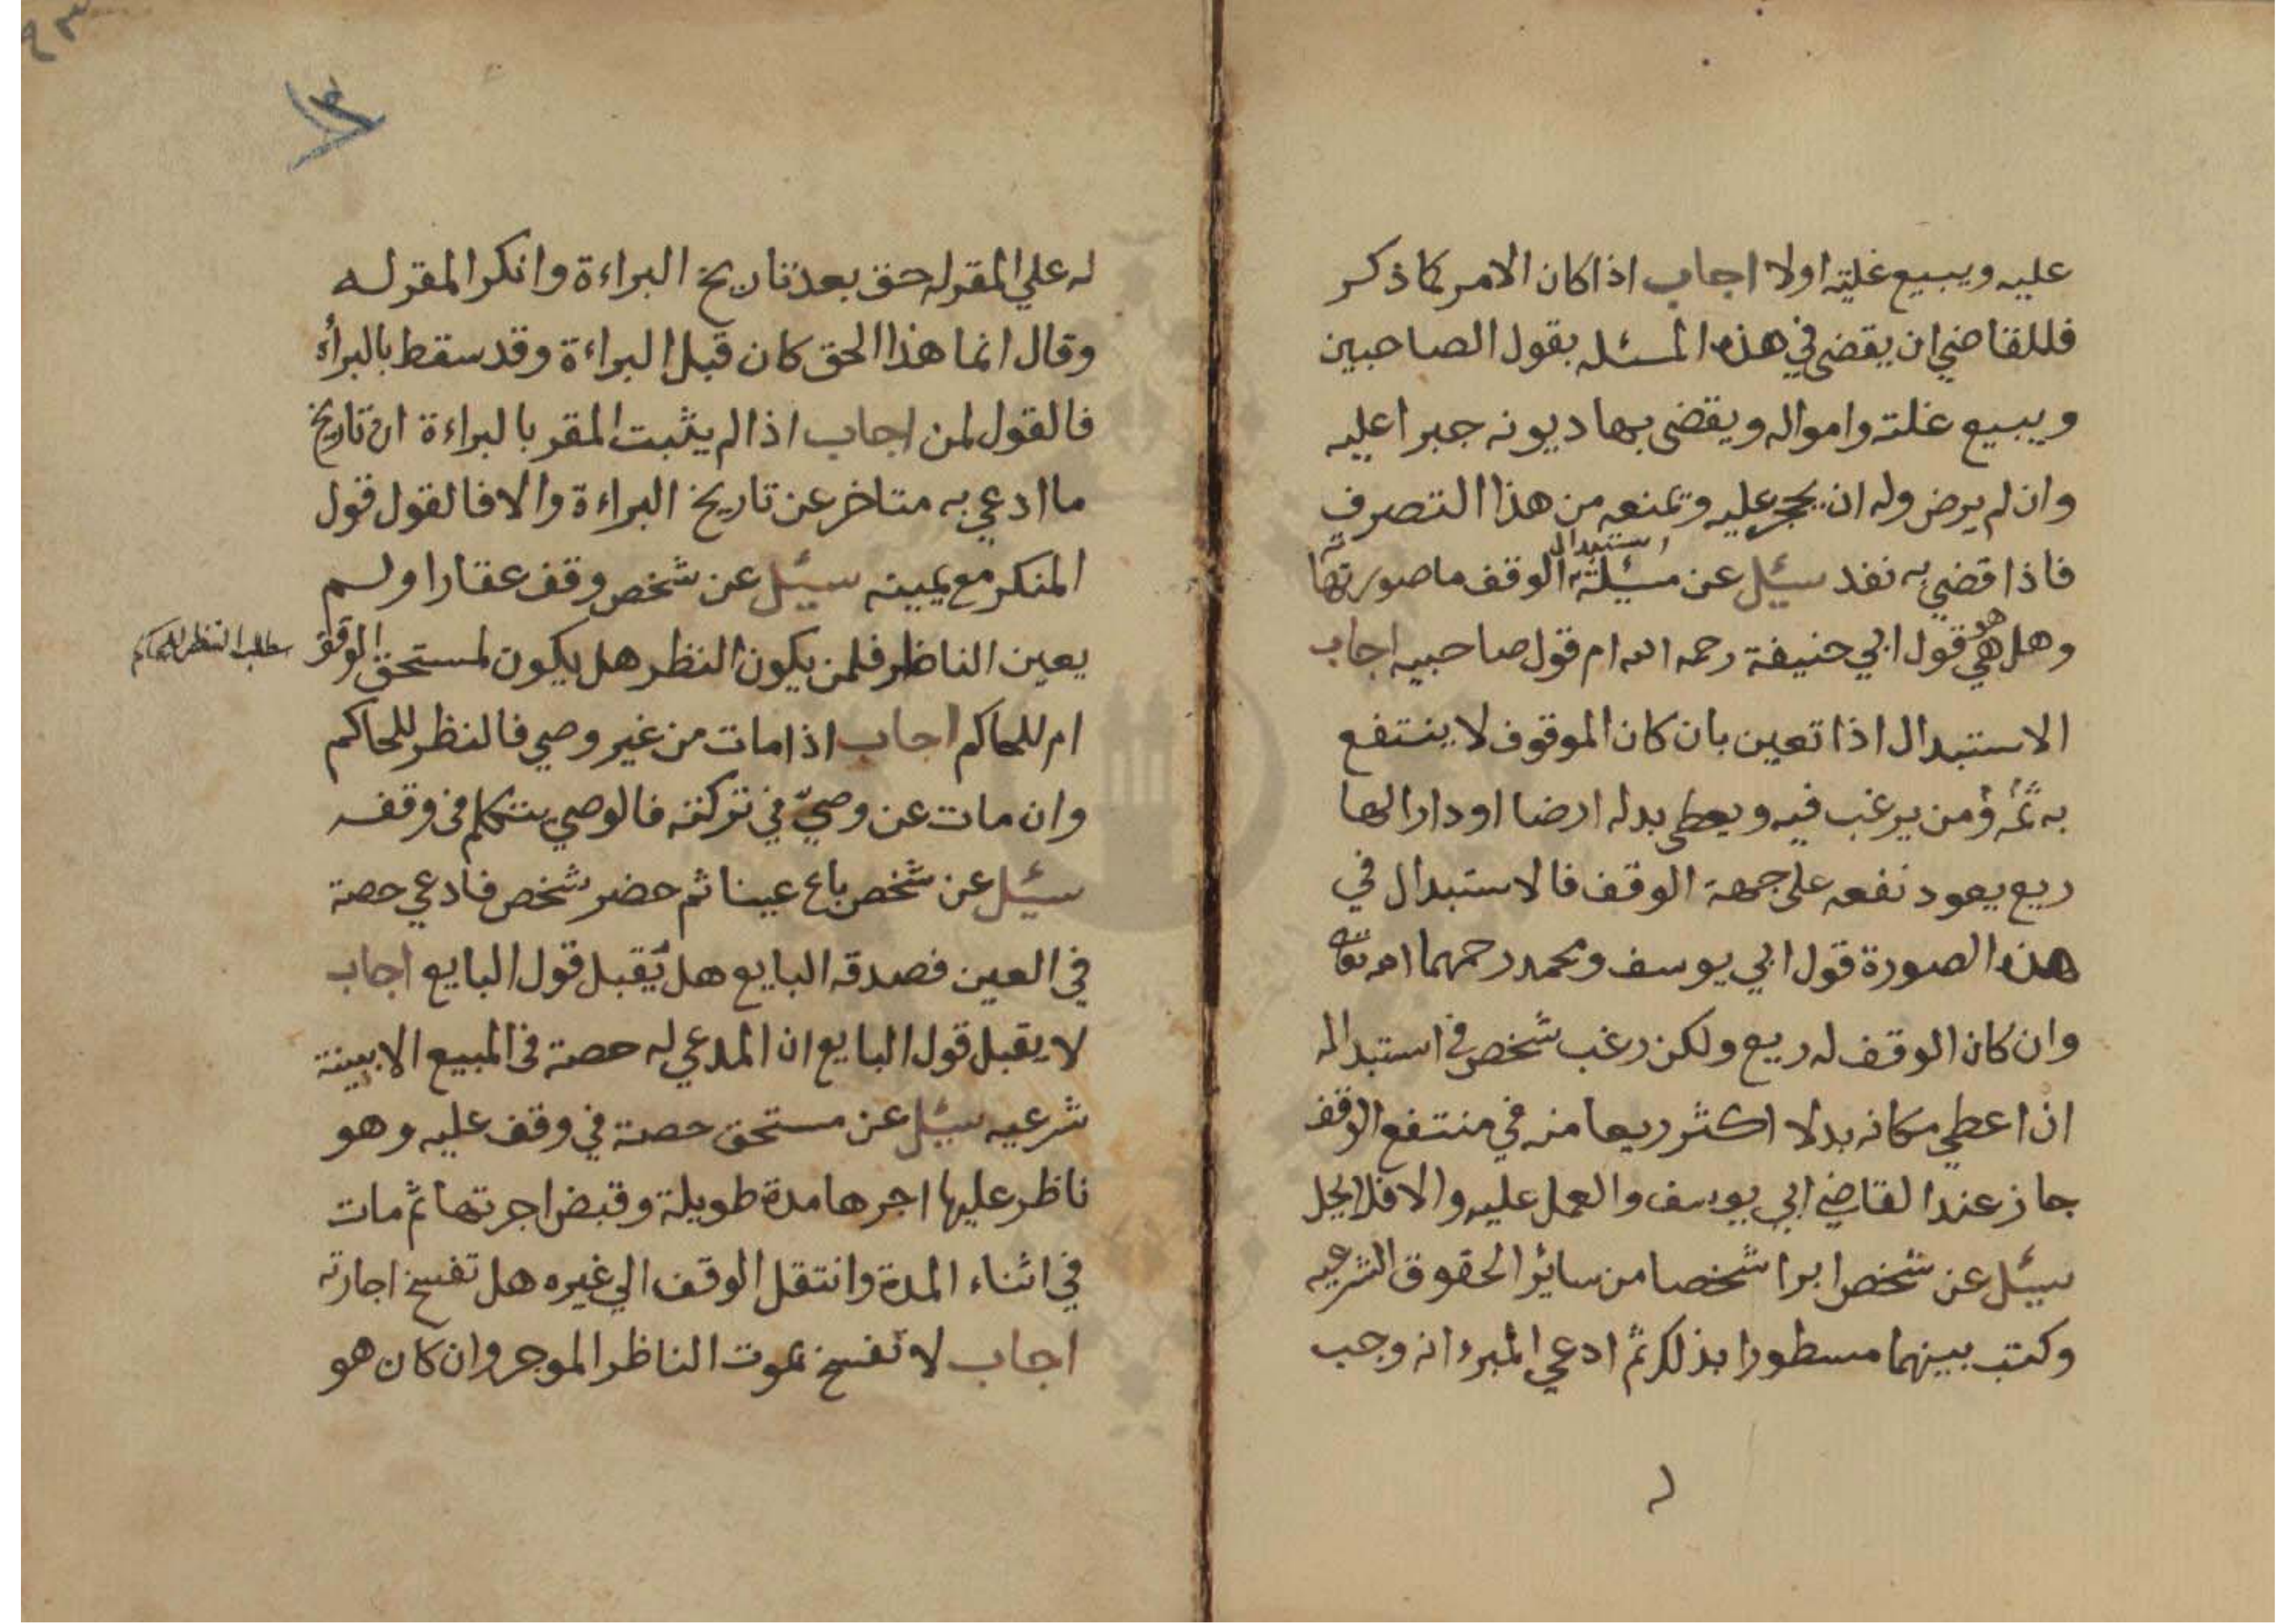 عليه ويبيع غلته اولا اجاب اذا كان الامر كما ذكر
فللقاضي ان يقضي في هذه المسئله بقول الصاحبين
ويبيع غلته وامواله ويقضى بها ديونه جبرا عليه
وان لم يرض وله ان يحجر عليه وتمنعه من هذا التصرف
فاذا قضي به نفد سئل عن مسئلة استبدال الوقف ما صورتها
وهل هي هو قول ابي حنيفة رحمه الله ام قول صاحبيه اجاب
الاستبدال اذا تعين بان كان الموقوف لا ينتفع
به ثمه ومن يرغب فيه ويعطى بدله ارضا او دارا لها
ريع يعود نفعه على جهة الوقف فالاستبدال في
هذه الصورة قول ابي يوسف ومحمد رحمهما الله تعا
وان كان الوقف له ريع ولكن رغب شخص في استبداله
ان اعطي مكانه بدلا اكثر ريعا منه في منتفع الوقف
جاز عند القاضي ابي يوسف والعمل عليه والا فلا يحل
سئل عن شخص ابرا شخصا من سائر الحقوق الشرعيه
وكتب بينهما مسطورا بذلك ثم ادعي المبرء انه وجب
له
٩٣
له علي المقر له حق بعد تاريخ البراءة وانكر المقر له
وقال انما هذا الحق كان قبل البراءة وقد سقط بالبرأة
فالقول لمن اجاب اذا لم يثبت المقر بالبراءة ان تاريخ
ما ادعي به متاخر عن تاريخ البراءة والا فالقول قول
المنكر مع يمينه سئل عن شخص وقف عقارا ولم
يعين الناظر فلمن يكون النظر هل يكون لمستحق الوقف
مطلب النظر للحاكم
ام للحاكم اجاب اذا مات من غير وصي فالنظر للحاكم
وان مات عن وصيّ في تركته فالوصي يتكلم فى وقفه
سئل عن شخص باع عينا ثم حضر شخص فادعي حصة
في العين فصدقه البايع هل يقبل قول البايع اجاب
لا يقبل قول البايع ان المدعي له حصة فى المبيع الا ببينة
شرعيه سئل عن مستحق حصة في وقف عليه وهو
ناظر عليها اجرها مدة طويلة وقبض اجرتها ثم مات
في اثناء المدة وانتقل الوقف الي غيره هل تفسخ اجارته
اجاب لا تفسخ بموت الناظر الموجر وان كان هو